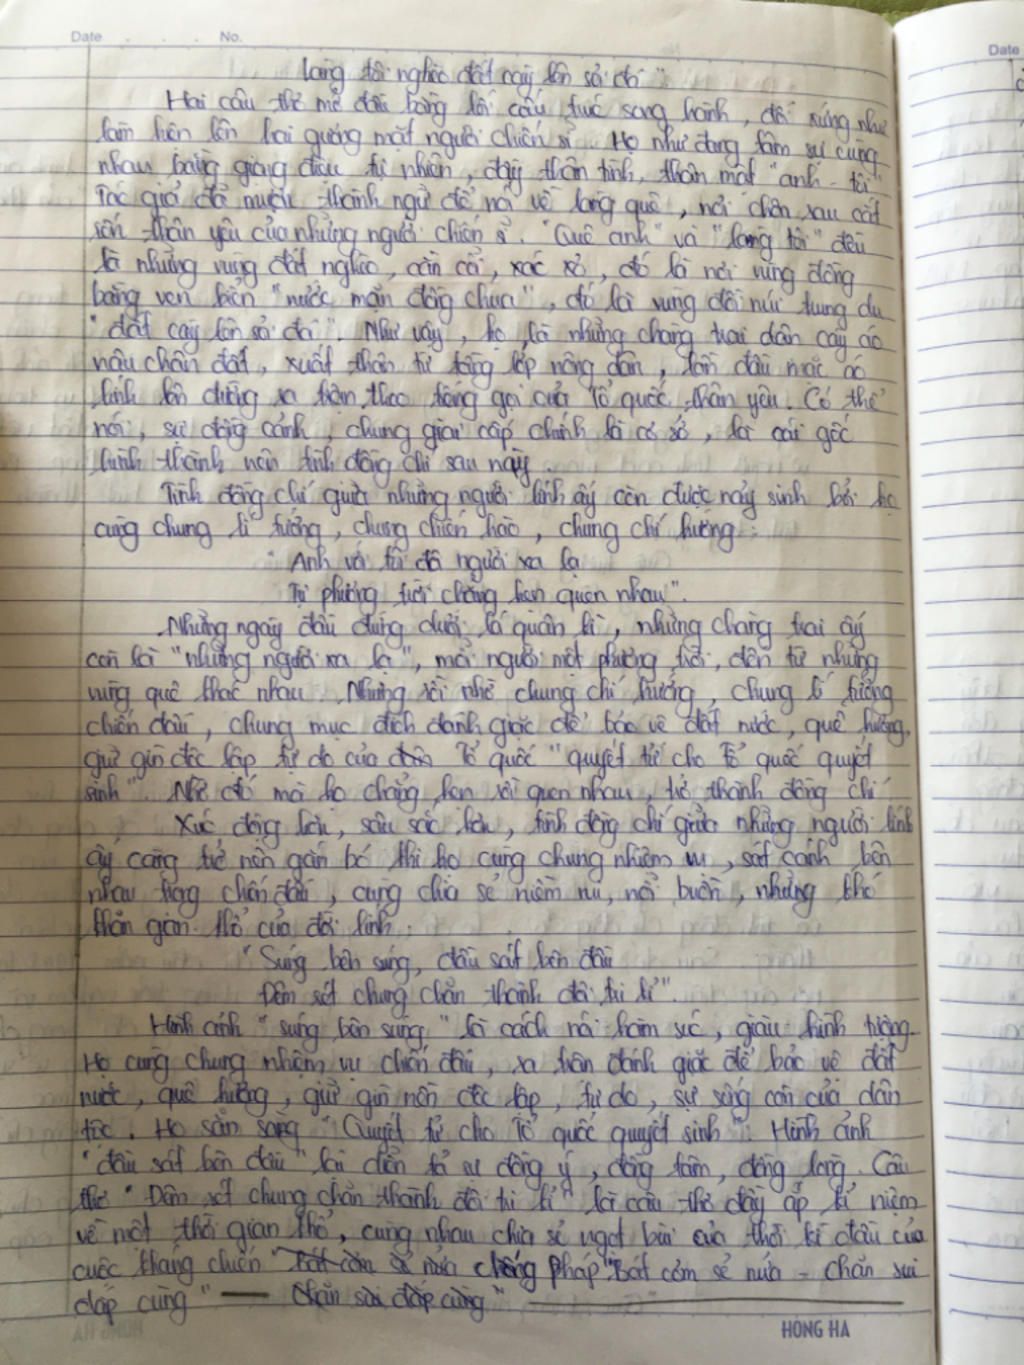 Date No.
Date
làng tôi nghèo đất cày lên sỏi đá"
Hai câu thơ mở đầu bằng lối cấu trúc song hành, đối xứng như
làm hiện lên hai gương mặt người chiến sĩ. Họ như đang tâm sự cùng
nhau bằng giọng điệu tự nhiên, đầy thân tình, thân mật "anh - tôi"
Tác giả đã mượn thành ngữ để nói về làng quê, nơi chôn rau cắt
rốn thân yêu của những người chiến sĩ. "Quê anh" và "làng tôi" đều
là những vùng đất nghèo, cằn cỗi, xác xơ, đó là nơi vùng đồng
bằng ven biển "nước mặn đồng chua", đó là vùng đồi núi trung du
"đất cày lên sỏi đá". Như vậy, họ là những chàng trai dân cày áo
nâu chân đất, xuất thân từ tầng lớp nông dân, lần đầu mặc áo
lính lên đường ra trận theo tiếng gọi của Tổ quốc thân yêu. Có thể
nói, sự đồng cảnh, chung giai cấp chính là cơ sở, là cái gốc
hình thành nên tình đồng chí sau này.
Tình đồng chí giữa những người lính ấy còn được nảy sinh bởi họ
cùng chung lí tưởng, chung chiến hào, chung chí hướng:
"Anh với tôi đôi người xa lạ
Tự phương trời chẳng hẹn quen nhau".
Những ngày đầu đứng dưới lá quân kì, những chàng trai ấy
còn là "những người xa lạ", mỗi người một phương trời, đến từ những
vùng quê khác nhau. Nhưng rồi nhờ chung chí hướng, chung lí tưởng
chiến đấu, chung mục đích đánh giặc để bảo vệ đất nước, quê hương,
giữ gìn độc lập tự do của Tổ quốc "quyết tử cho Tổ quốc quyết
sinh". Nhờ đó mà họ chẳng hẹn rồi quen nhau, trở thành đồng chí
Xúc động hơn, sâu sắc hơn, tình đồng chí giữa những người lính
ấy càng trở nên gắn bó khi họ cùng chung nhiệm vụ, sát cánh bên
nhau trong chiến đấu, cùng chia sẻ niềm vui, nỗi buồn, những khó
khăn gian khổ của đời lính:
"Súng bên súng, đầu sát bên đầu
Đêm rét chung chăn thành đôi tri kỉ".
Hình ảnh "súng bên súng" là cách nói hàm súc, giàu hình tượng.
Họ cùng chung nhiệm vụ chiến đấu, ra trận đánh giặc để bảo vệ đất
nước, quê hương, giữ gìn nền độc lập, tự do, sự sống còn của dân
tộc. Họ sẵn sàng "Quyết tử cho Tổ quốc quyết sinh". Hình ảnh
"đầu sát bên đầu" lại diễn tả sự đồng ý, đồng tâm, đồng lòng. Câu
thơ "Đêm rét chung chăn thành đôi tri kỉ" là câu thơ đầy ắp kỉ niệm
về một thời gian khổ, cùng nhau chia sẻ ngọt bùi của thời kì đầu của
cuộc kháng chiến chống Pháp "Bát cơm sẻ nửa - chăn sui
đắp cùng"
HỒNG HÀ